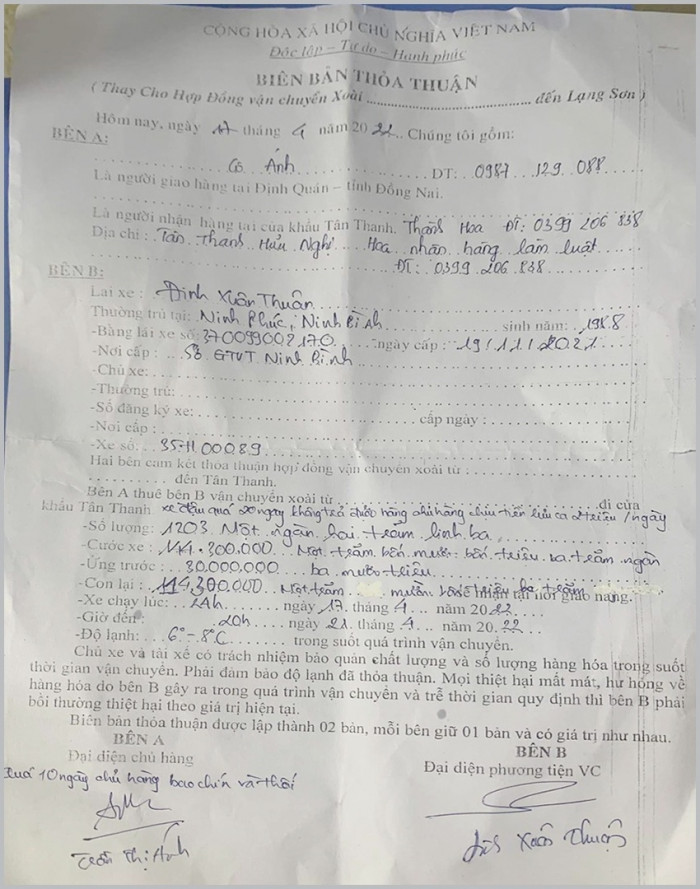 CỘNG HÒA XÃ HỘI CHỦ NGHĨA VIỆT NAM
Độc lập – Tự do – Hạnh phúc
BIÊN BẢN THỎA THUẬN
( Thay Cho Hợp Đồng vận chuyển Xoài ........................ đến Lạng Sơn )
Hôm nay, ngày 17 tháng 4 năm 2022. Chúng tôi gồm:
BÊN A:
Cô Ánh ĐT: 0987 129 088
Là người giao hàng tại Định Quán – tỉnh Đồng Nai.
Là người nhận hàng tại cửa khẩu Tân Thanh. Thanh Hoa ĐT: 0399 206 838
Địa chỉ: Tân Thanh Hữu Nghị Hoa nhận hàng làm luật
ĐT: 0399 206 838
BÊN B:
Lái xe: Đinh Xuân Thuân
Thường trú tại: Ninh Phúc, Ninh Bình sinh năm:
-Bằng lái xe số: 370099002170 ngày cấp: 19/11/2021
-Nơi cấp: Sở GTVT Ninh Bình
-Chủ xe:
-Thường trú:
-Số đăng ký xe: cấp ngày:
-Nơi cấp:
-Xe số: 35H 00089
Hai bên cam kết thỏa thuận hợp đồng vận chuyển xoài từ:
đến Tân Thanh.
Bên A thuê bên B vận chuyển xoài từ đi cửa
khẩu Tân Thanh xe đậu quá 20 ngày không trả được hàng chủ hàng chịu tiền lưu ca 2 triệu /ngày
-Số lượng: 1203. Một ngàn hai trăm linh ba
-Cước xe: 144.300.000. Một trăm bốn mươi bốn triệu ba trăm ngàn
-Ứng trước: 30.000.000 ba mươi triệu
-Còn lại: 114,300.000 Một trăm nhận tại nơi giao hàng.
-Xe chạy lúc: 24h ngày 17 tháng 4 năm 2022
-Giờ đến: 20h ngày 21 tháng 4 năm 2022
-Độ lạnh: 6°-8°C trong suốt quá trình vận chuyển.
Chủ xe và tài xế có trách nhiệm bảo quản chất lượng và số lượng hàng hóa trong suốt
thời gian vận chuyển. Phải đảm bảo độ lạnh đã thỏa thuận. Mọi thiệt hại mất mát, hư hỏng về
hàng hóa do bên B gây ra trong quá trình vận chuyển và trễ thời gian quy định thì bên B phải
bồi thường thiệt hại theo giá trị hiện tại.
Biên bản thỏa thuận được lập thành 02 bản, mỗi bên giữ 01 bản và có giá trị như nhau.
BÊN A BÊN B
Đại diện chủ hàng Đại diện phương tiện VC
Quá 10 ngày chủ hàng bao chín và thối
Trần Thị Ánh Đinh Xuân Thuân